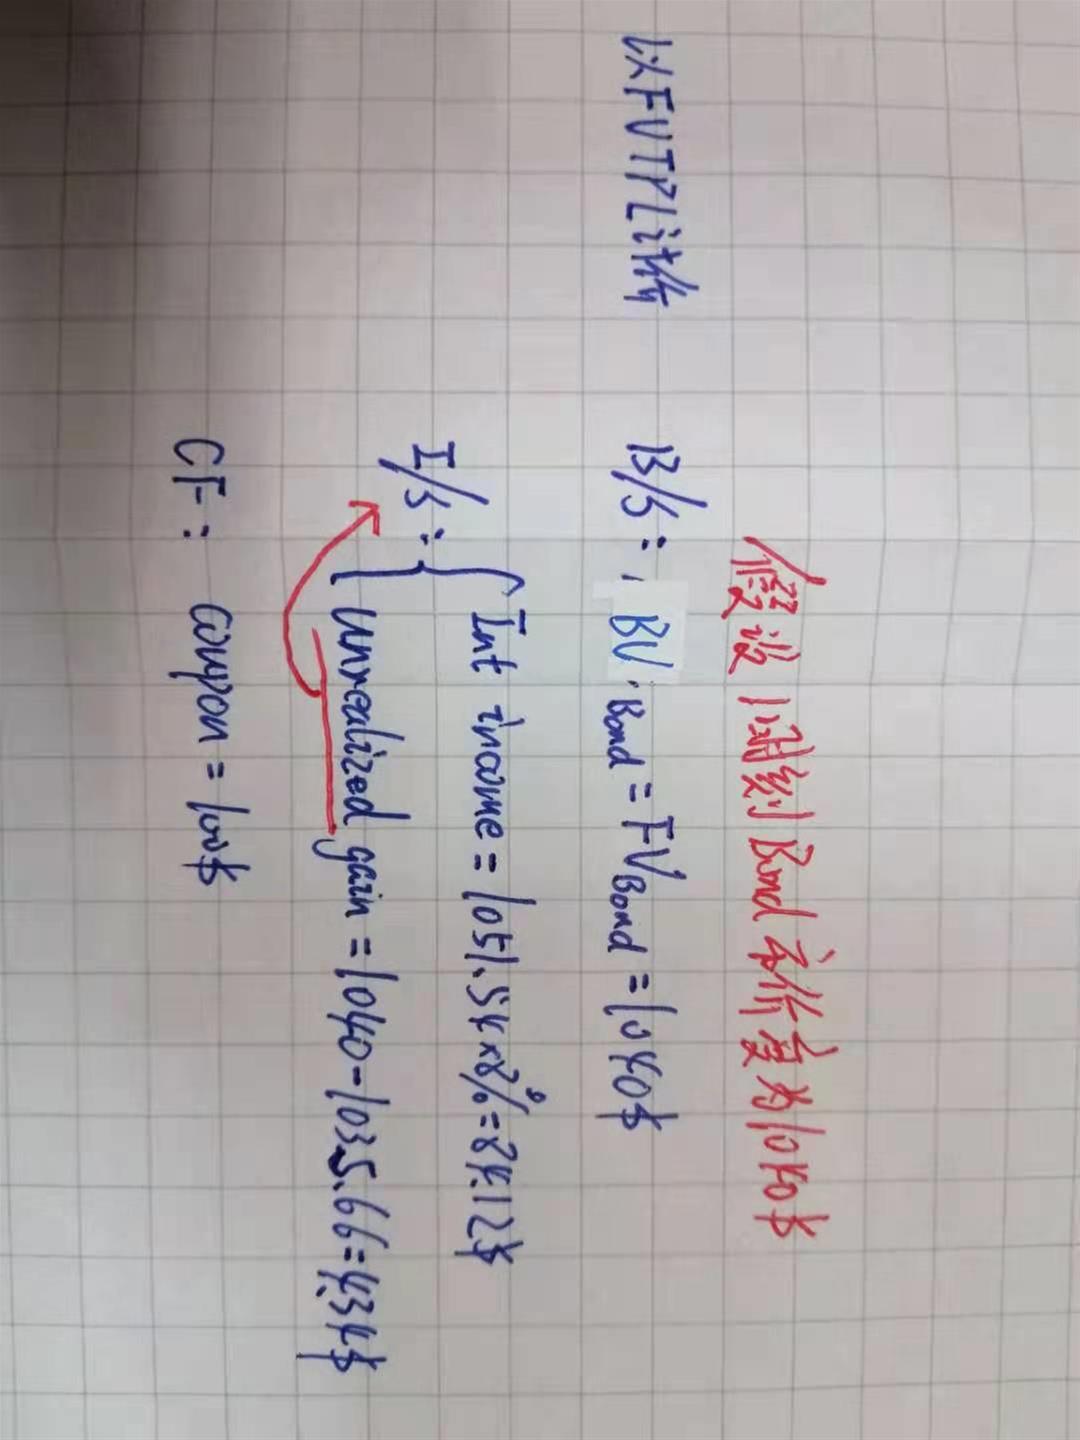 假设1时刻Bond市价变为1040$
以FVTPL计价 B/S: BV.Bond = FV.Bond = 1040$
I/S: { Int income = 1051.54×8% = 84.12$
Unrealized gain = 1040-1035.66=4.34$
CF: coupon = 100$